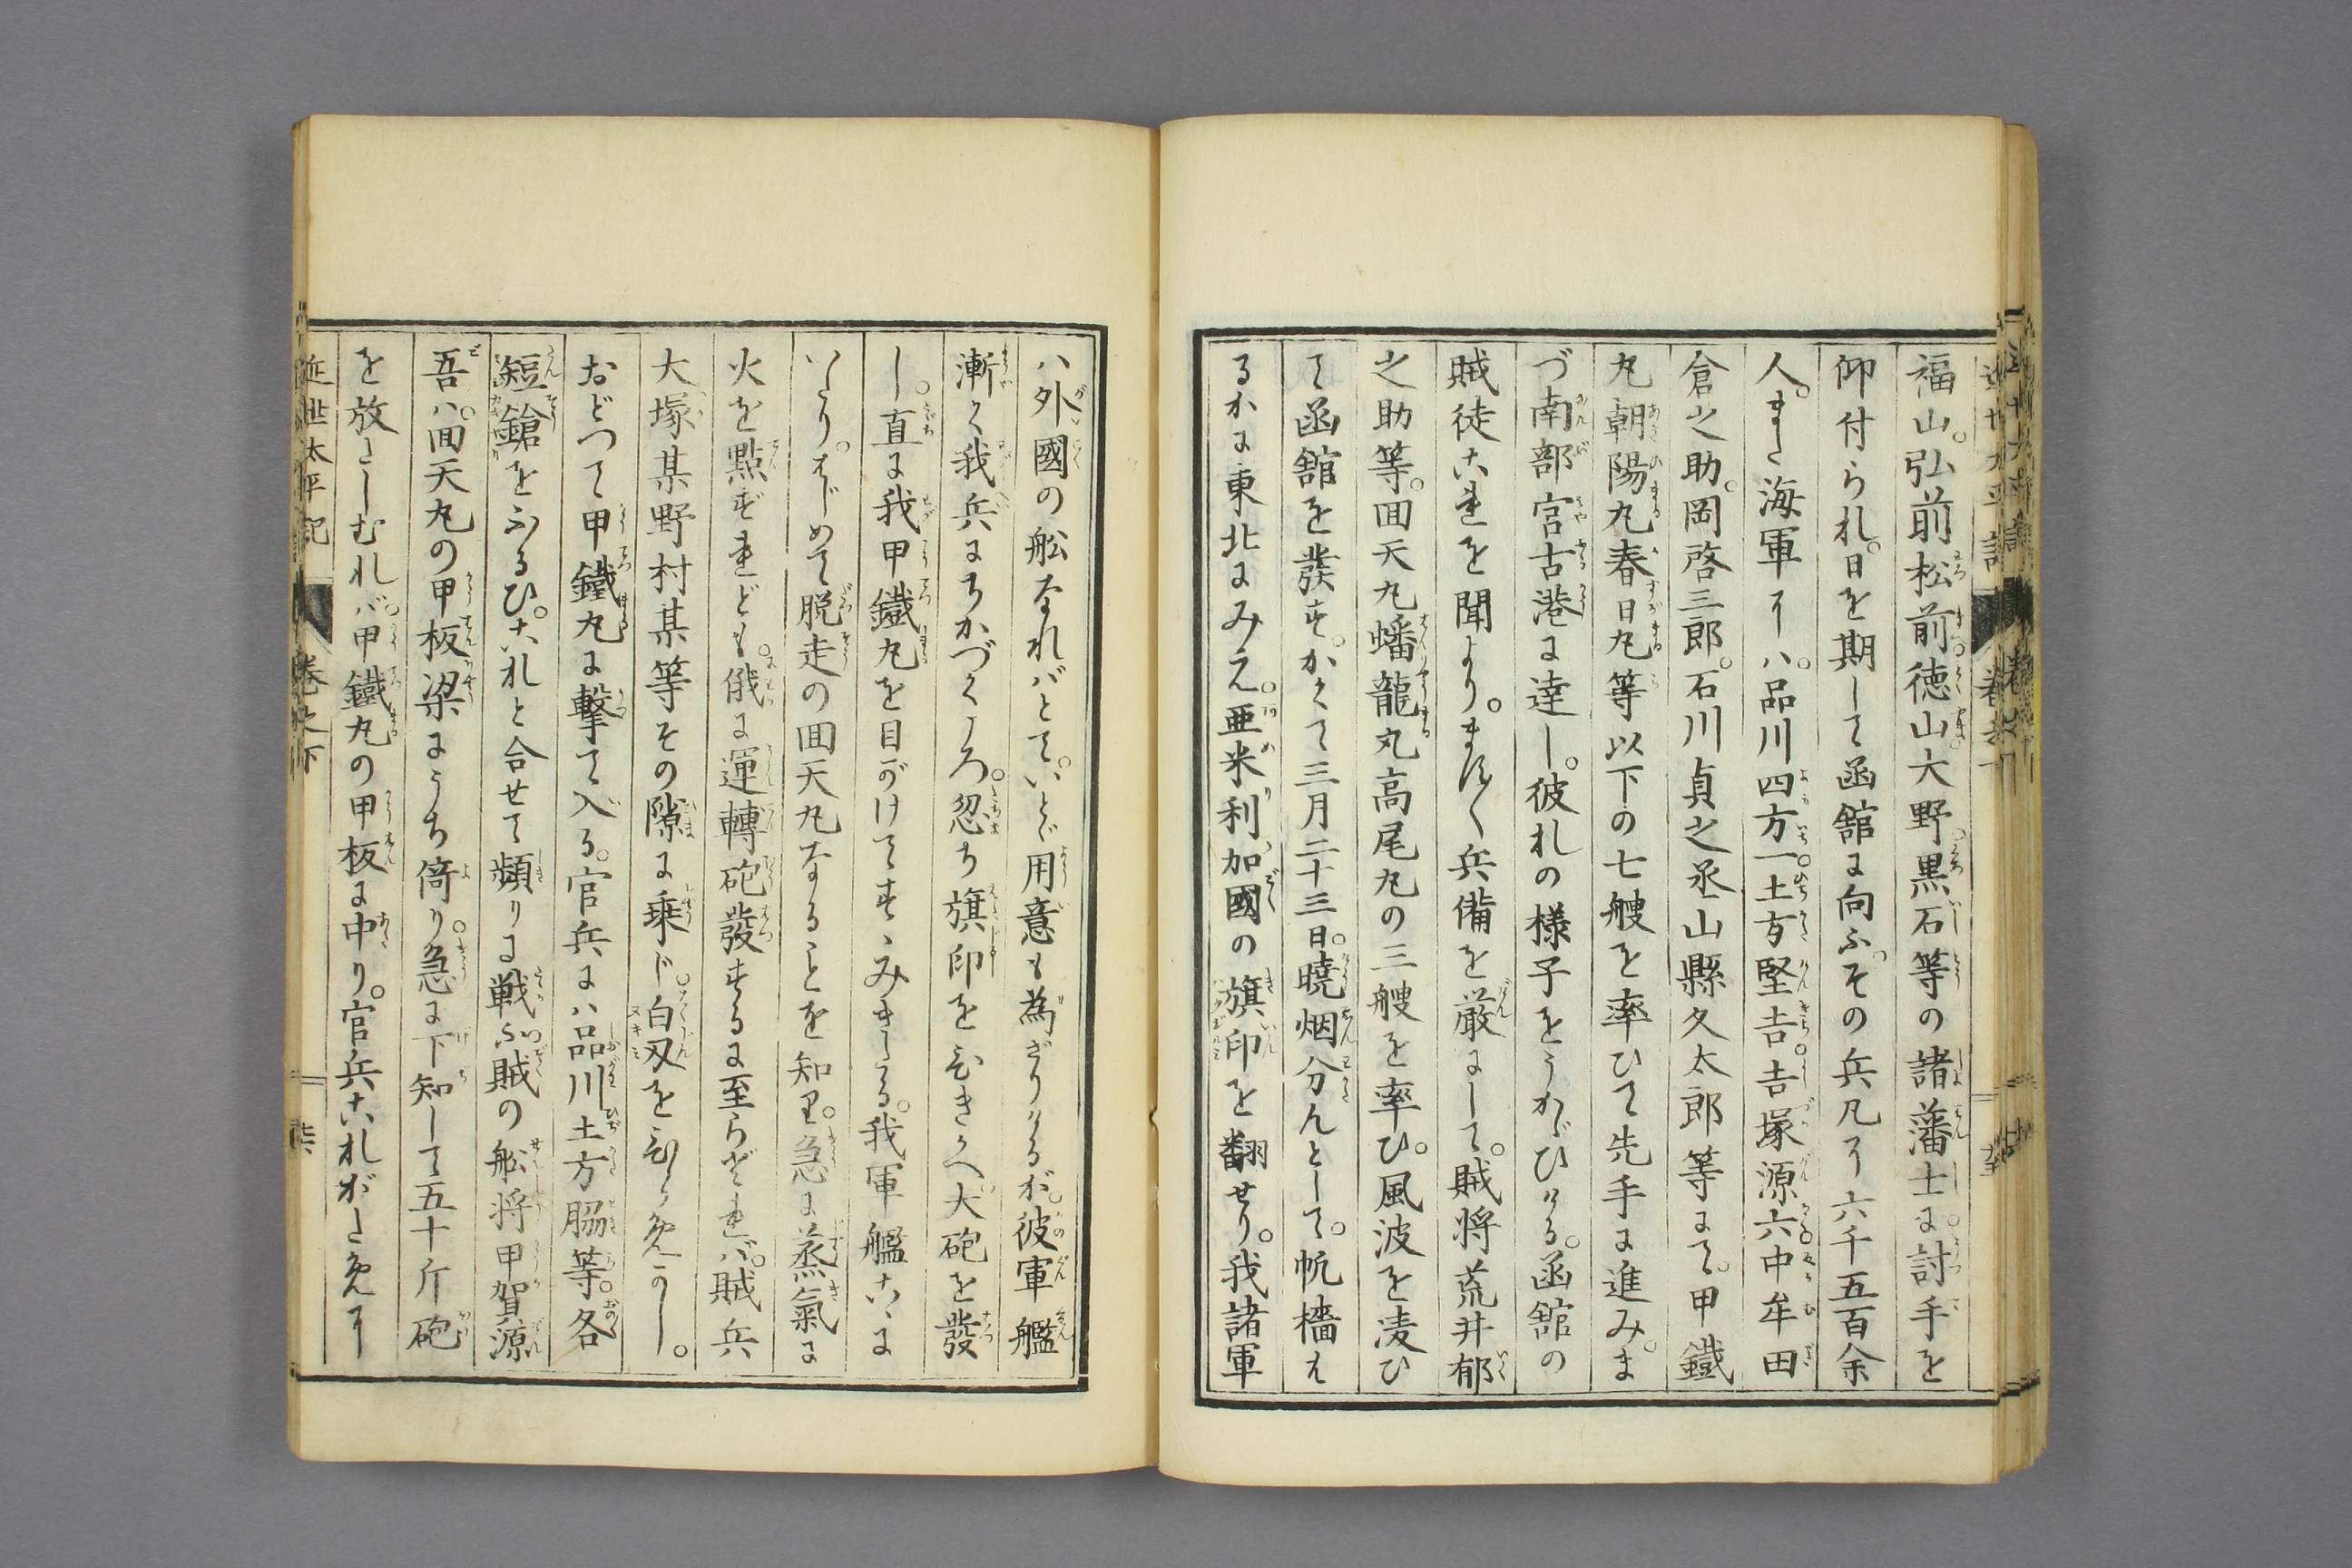 福山。弘前松前徳山大野。黒石等の諸藩士に討手を
仰付られ。日を期して函舘に向ふ。その兵凡そ六千五百余
人。また海軍にハ。品川四方一。土方堅吉。吉塚源六。中牟田
倉之助。岡啓三郎。石川貞之丞山縣久太郎等にて。甲鐵
丸朝陽丸春日丸等以下の七艘を率ひて先手に進み。ま
づ南部宮古港に達し。彼れの様子をうかゞひける。函舘の
賊徒これを聞より。ますます兵備を厳にして。賊将荒井郁
之助等。回天丸蟠龍丸高尾丸の三艘を率ひ。風波を凌ひ
て函舘を發す。かくて三月二十三日。曉烟分んとして。帆檣は
るかに東北にみえ。亜米利加國の旗印を翻せり。我諸軍
ハ外國の舩なれバとて。いとゞ用意も為ざりけるが。彼軍艦
漸く我兵にちかづくころ。忽ち旗印をひきかへ大砲を發
し。直に我甲鐵丸を目がけてすゝみきたる。我軍艦こゝに
いたり。はじめて脱走の回天丸なることを知り。急に蒸氣に
火を點ずれども。俄に運轉砲發するに至らざれバ。賊兵
大塚某野村某等その隙に乗じ。白刃をひらめかし。
おどつて甲鐵丸に撃て入る。官兵にハ品川土方脇等。各
短鎗をふるひ。これと合せて頻りに戦ふ。賊の舩将甲賀源
吾ハ。回天丸の甲板梁にうち倚り。急に下知して五十斤砲
を放たしむれバ。甲鐵丸の甲板に中り。官兵これがために
近世太平記
巻之下